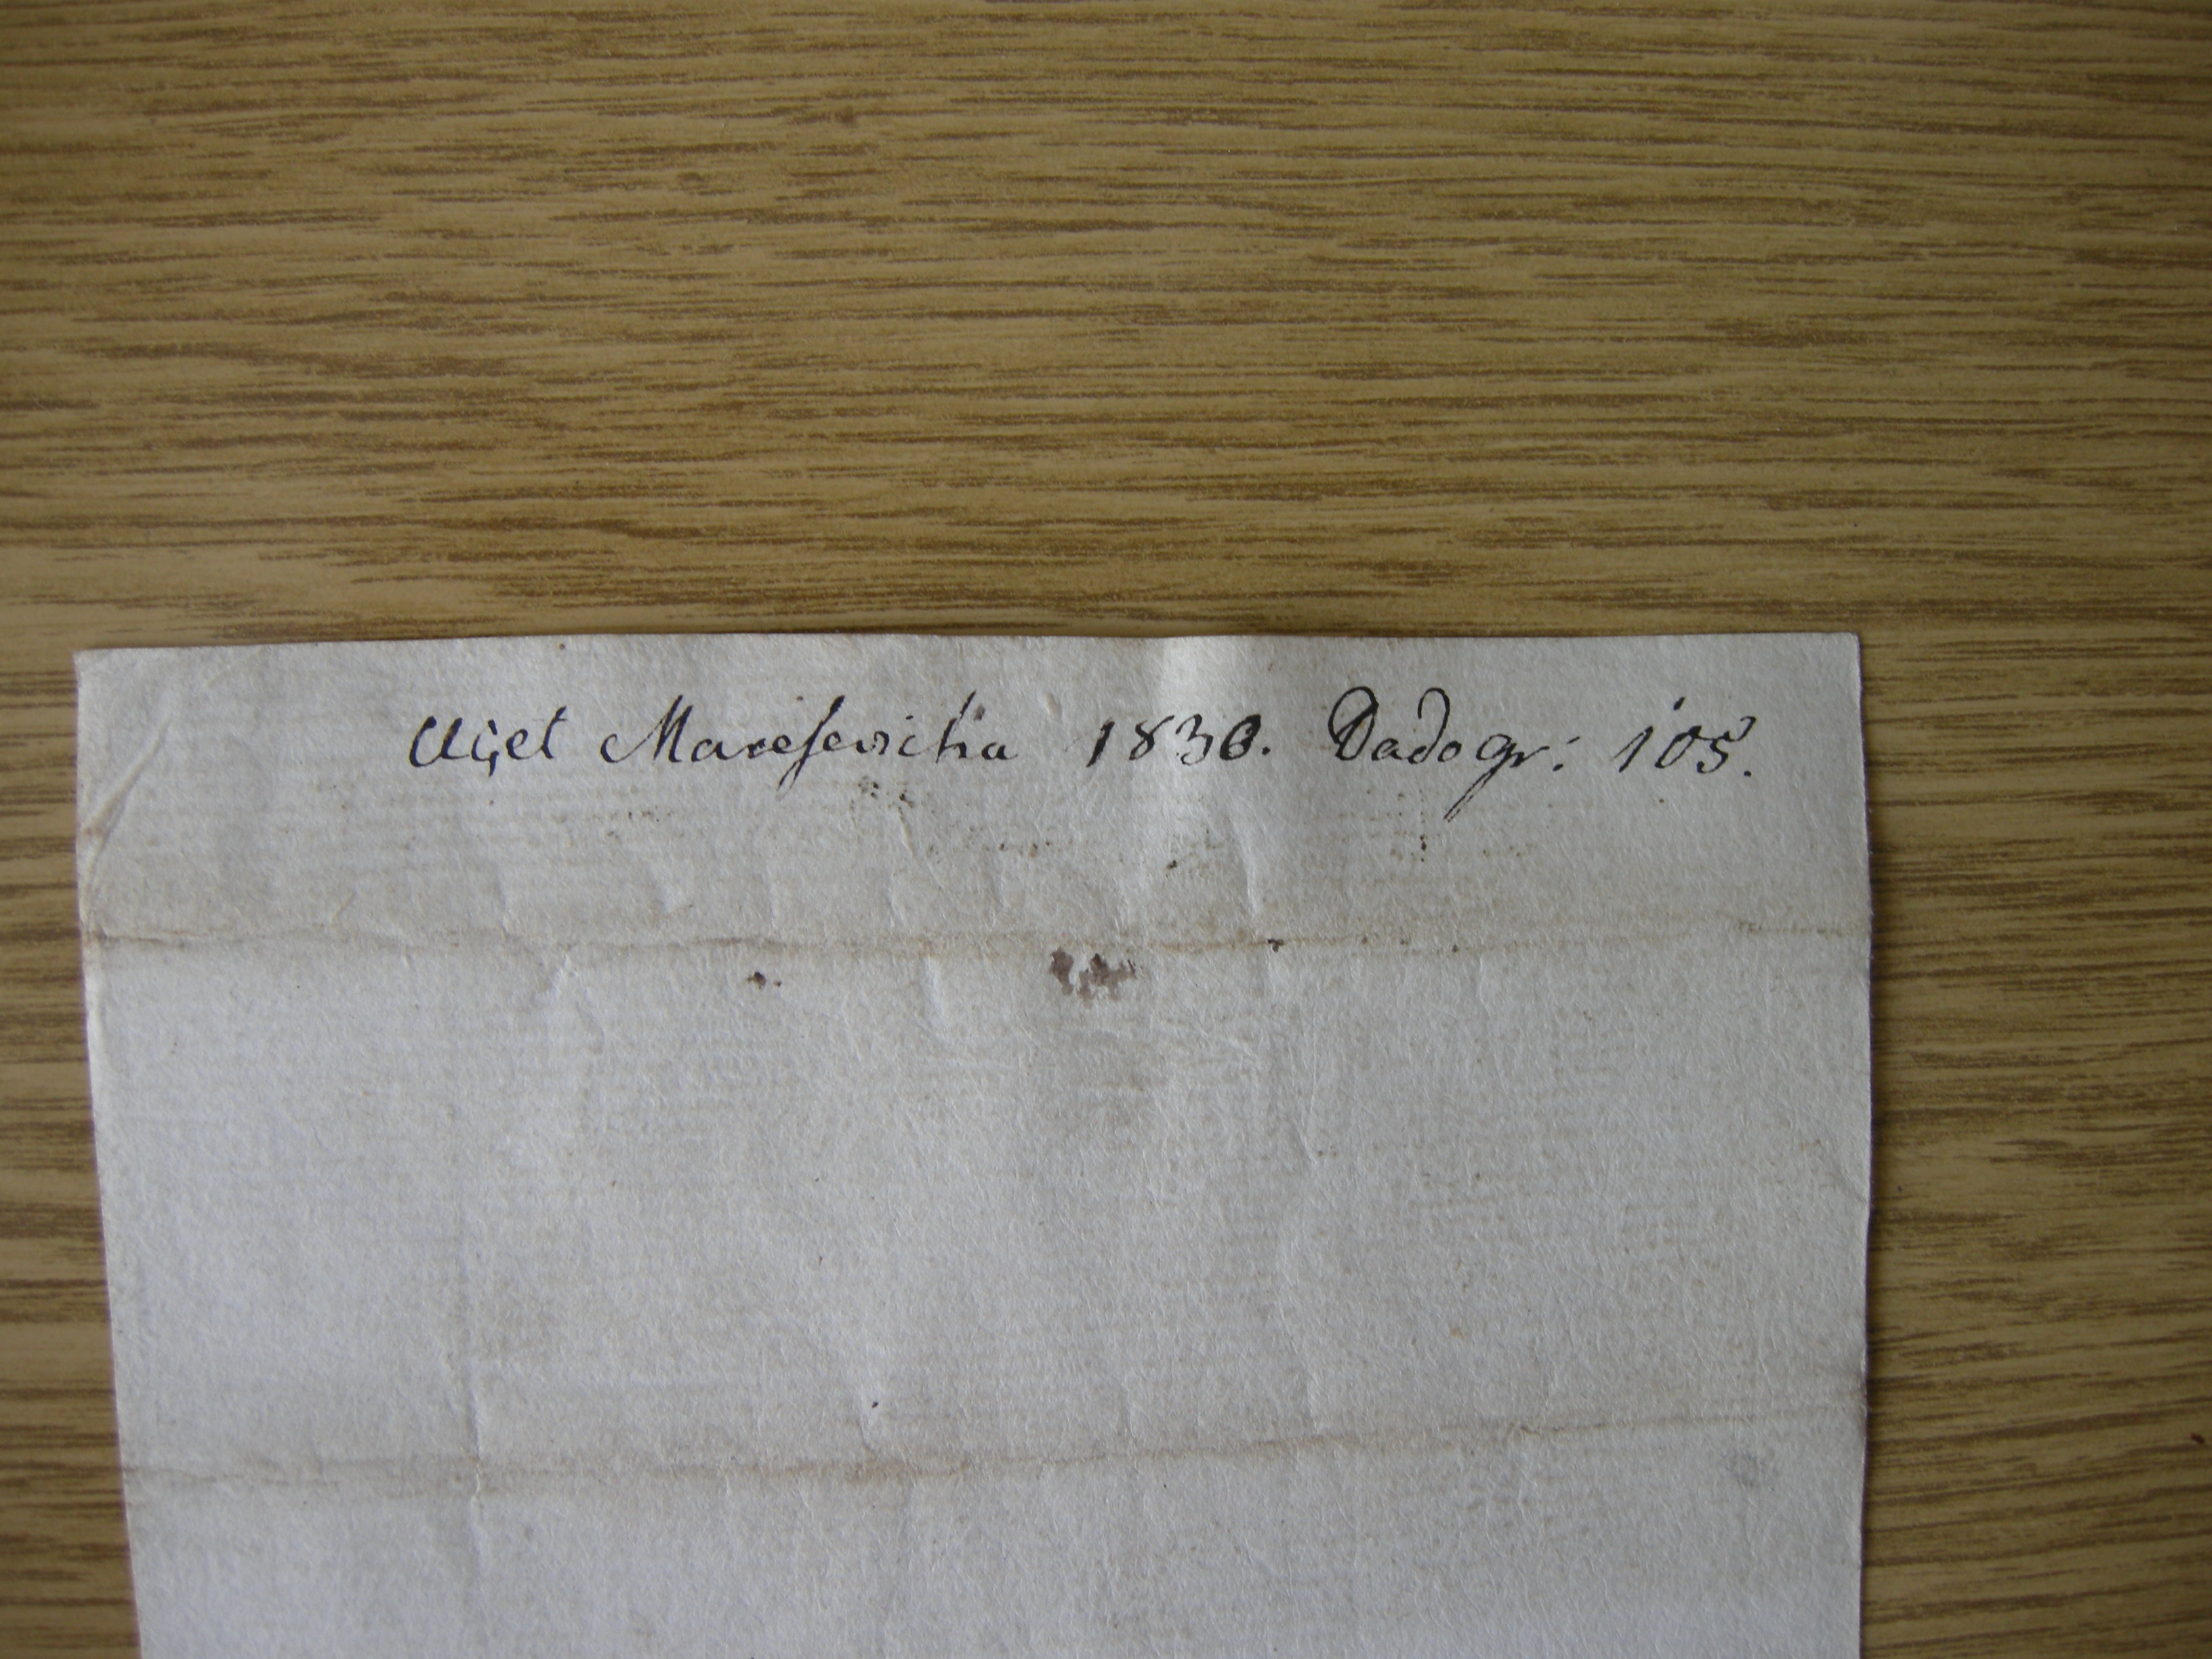 Uçet Maresevicha 1830. Dado gr: 105.